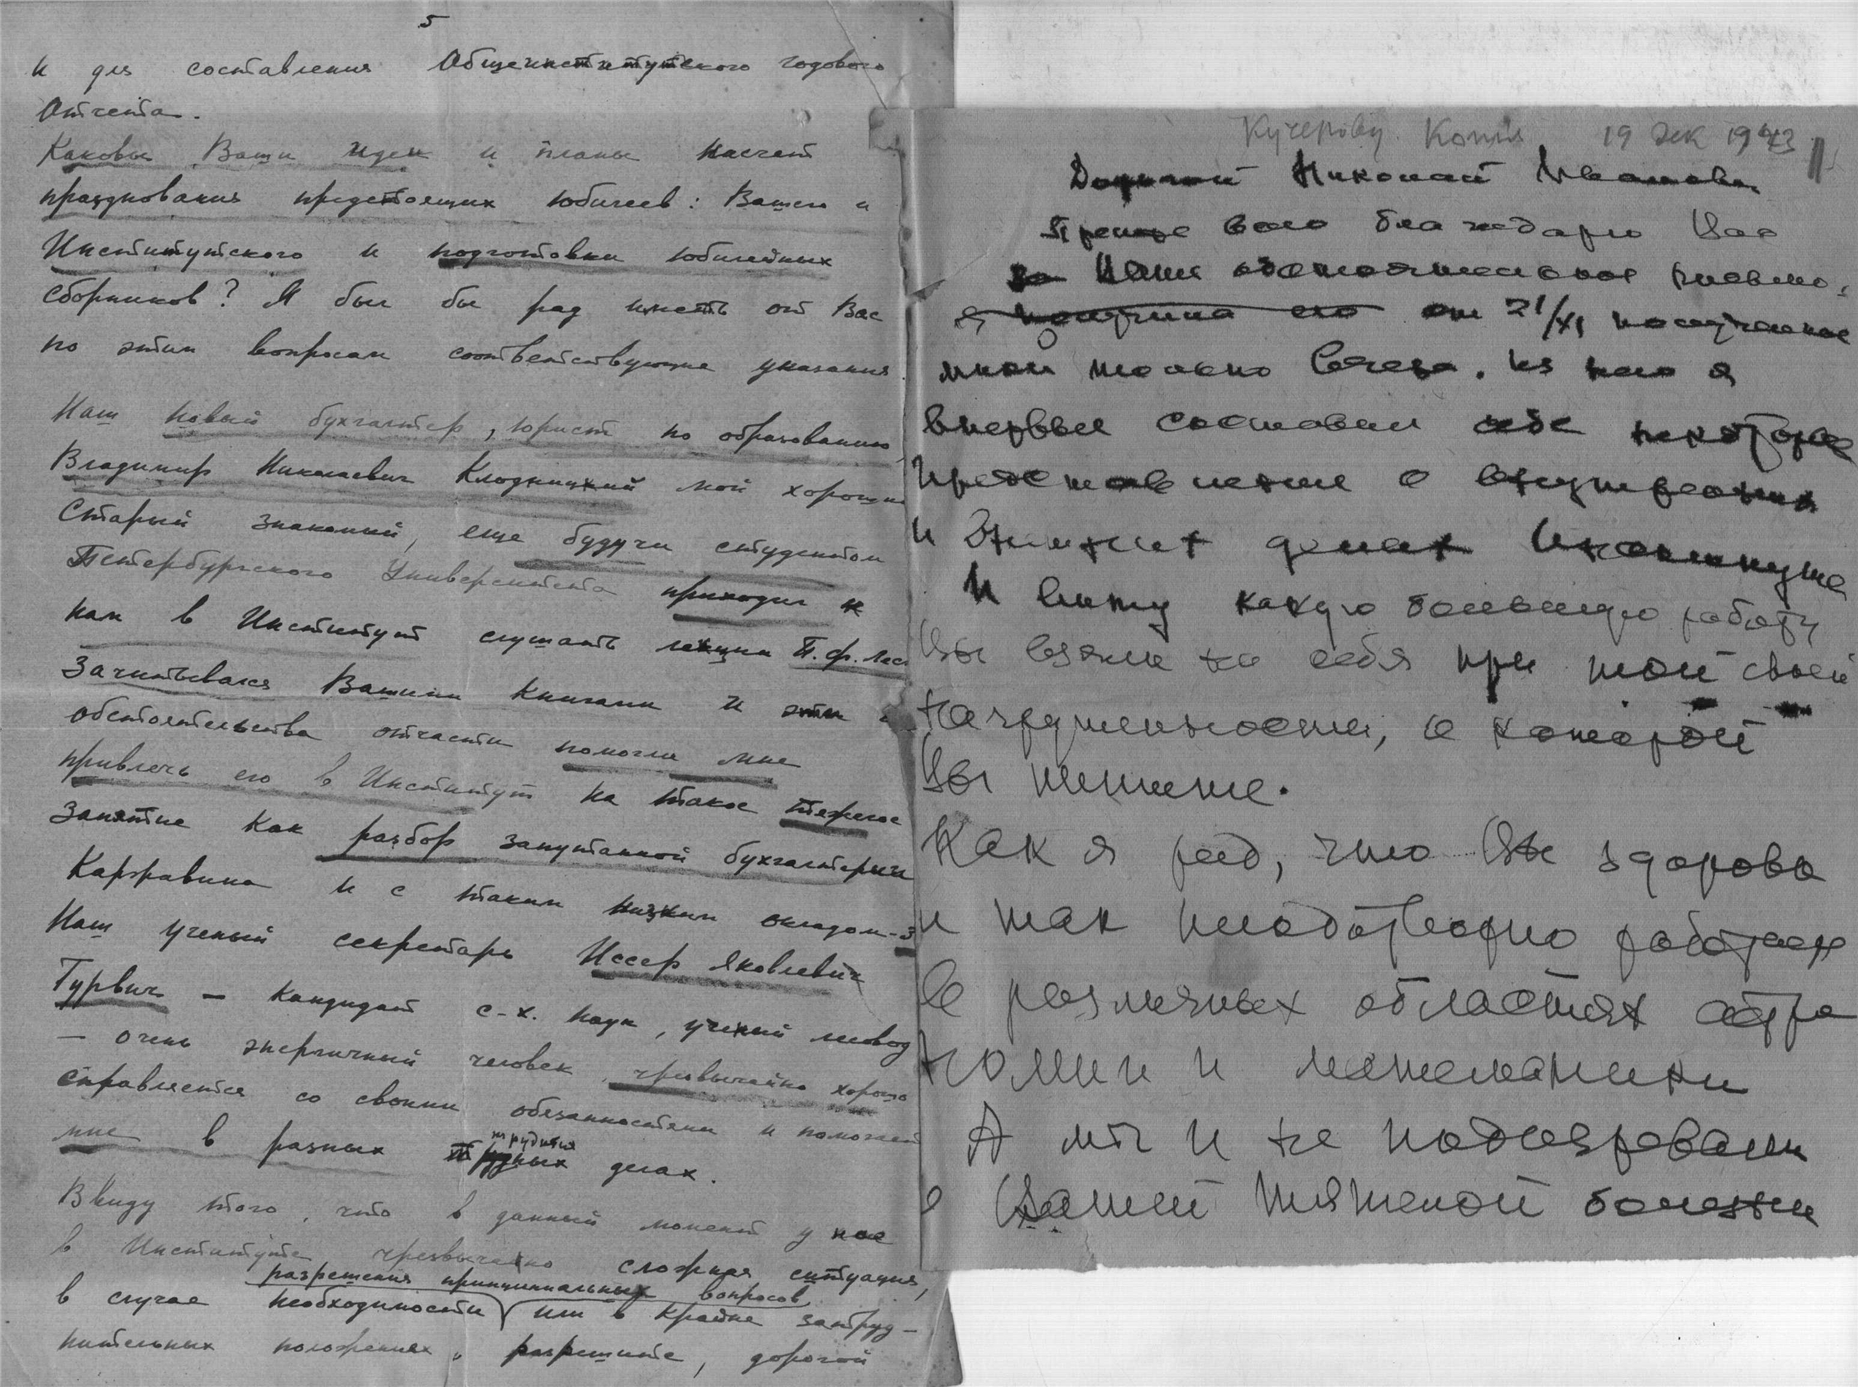 5
и для составления Общеинститутского годового
Отчета.
Каковы Ваши идеи и планы насчет
празднования предстоящих юбилеев: Вашего и
Институтского и подготовки юбилейных
сборников? Я был бы рад иметь от Вас
по этим вопросам соответствующие указания
Наш новый бухгалтер, юрист по образованию
Владимир Николаевич Клодницкий мой хороший
Старый знакомый, еще будучи студентом
Петербургского Университета приходил к
нам в Институт слушать лекции П.Ф. Лес
Зачитывался Вашими книгами и эти
обстоятельства отчасти помогли мне
привлечь его в Институт на такое тяжелое
занятие как разбор запутанной бухгалтерии
Каржавина и с таким низким окладом
Наш ученый секретарь Иссер Яковлевич
Гурвич – кандидат с-х. наук, ученый лесовод
– очень энергичный человек, чрезвычайно хорошо
справляется со своими обязанностями и помогает
мне в разных трудных делах.
Ввиду того, что в данный момент у нас
в Институте чрезвычайно сложная ситуация,
разрешения принципиальных вопросов
в случае необходимости или в крайне затруд-
нительных положениях, разрешите, дорогой
Кучерову. Копия 19 дек 1943
Дорогой Николай Иванович
Прежде всего благодарю Вас
за Ваше обстоятельное письмо,
я получила его от 21/XI полученное
мной только вчера. Из него я
впервые составил себе некоторое
представление о внутренних
и внешних делах Института
И вижу какую большую работу
Вы взяли на себя при той своей
нагруженности, о которой
Вы пишите.
Как я рад, что Вы здоровы
и так плодотворно работаете
в различных областях астро
номии и математики
А мы и не подозревали
о Вашей тяжелой болезни